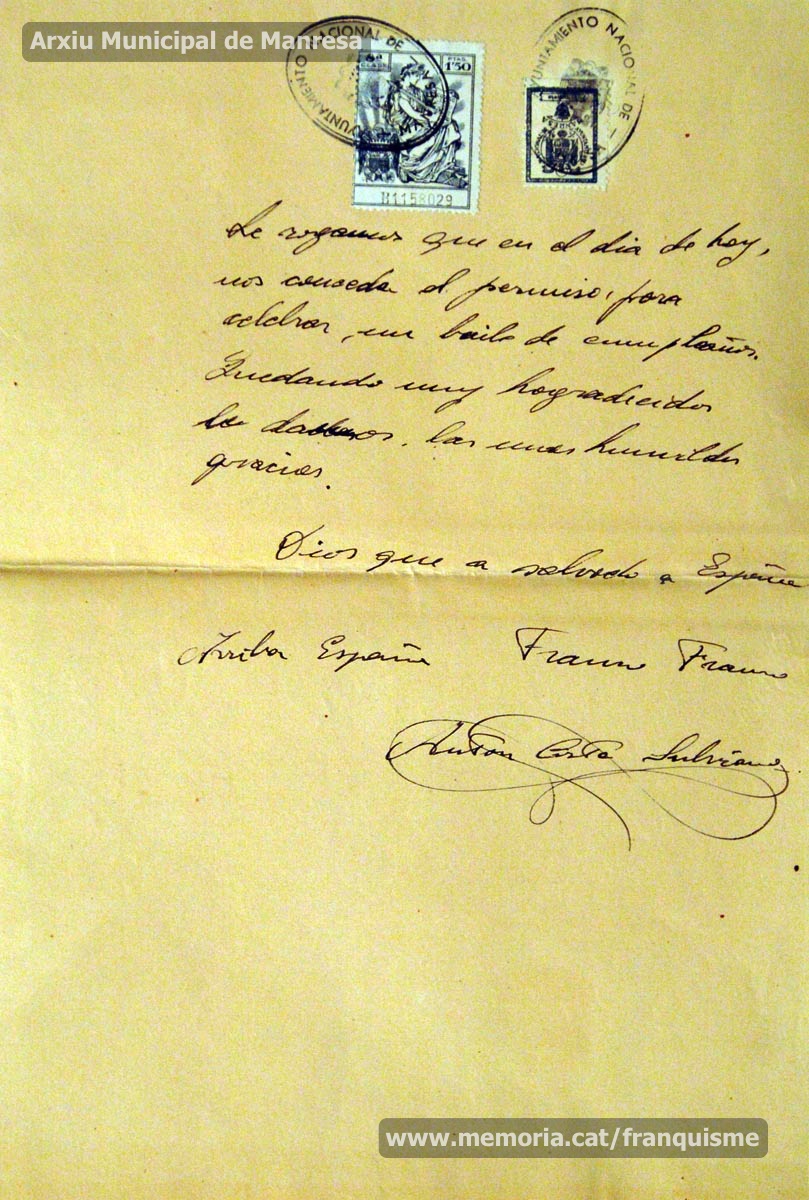 Arxiu Municipal de Manresa
AYUNTAMIENTO NACIONAL DE
MANRESA
AYUNTAMIENTO NACIONAL DE
8ª CLASE
PTAS 1'50
H1158029
Le rogamos que en el dia de hoy,
nos conceda el permiso, para
celebrar, un baile de cumpleaños.
Quedando muy hogradecidos
le damos, las mas humildes
gracias.
Dios que a salvado a España
Arriba España Franco Franco
Anton Costa
www.memoria.cat/franquisme